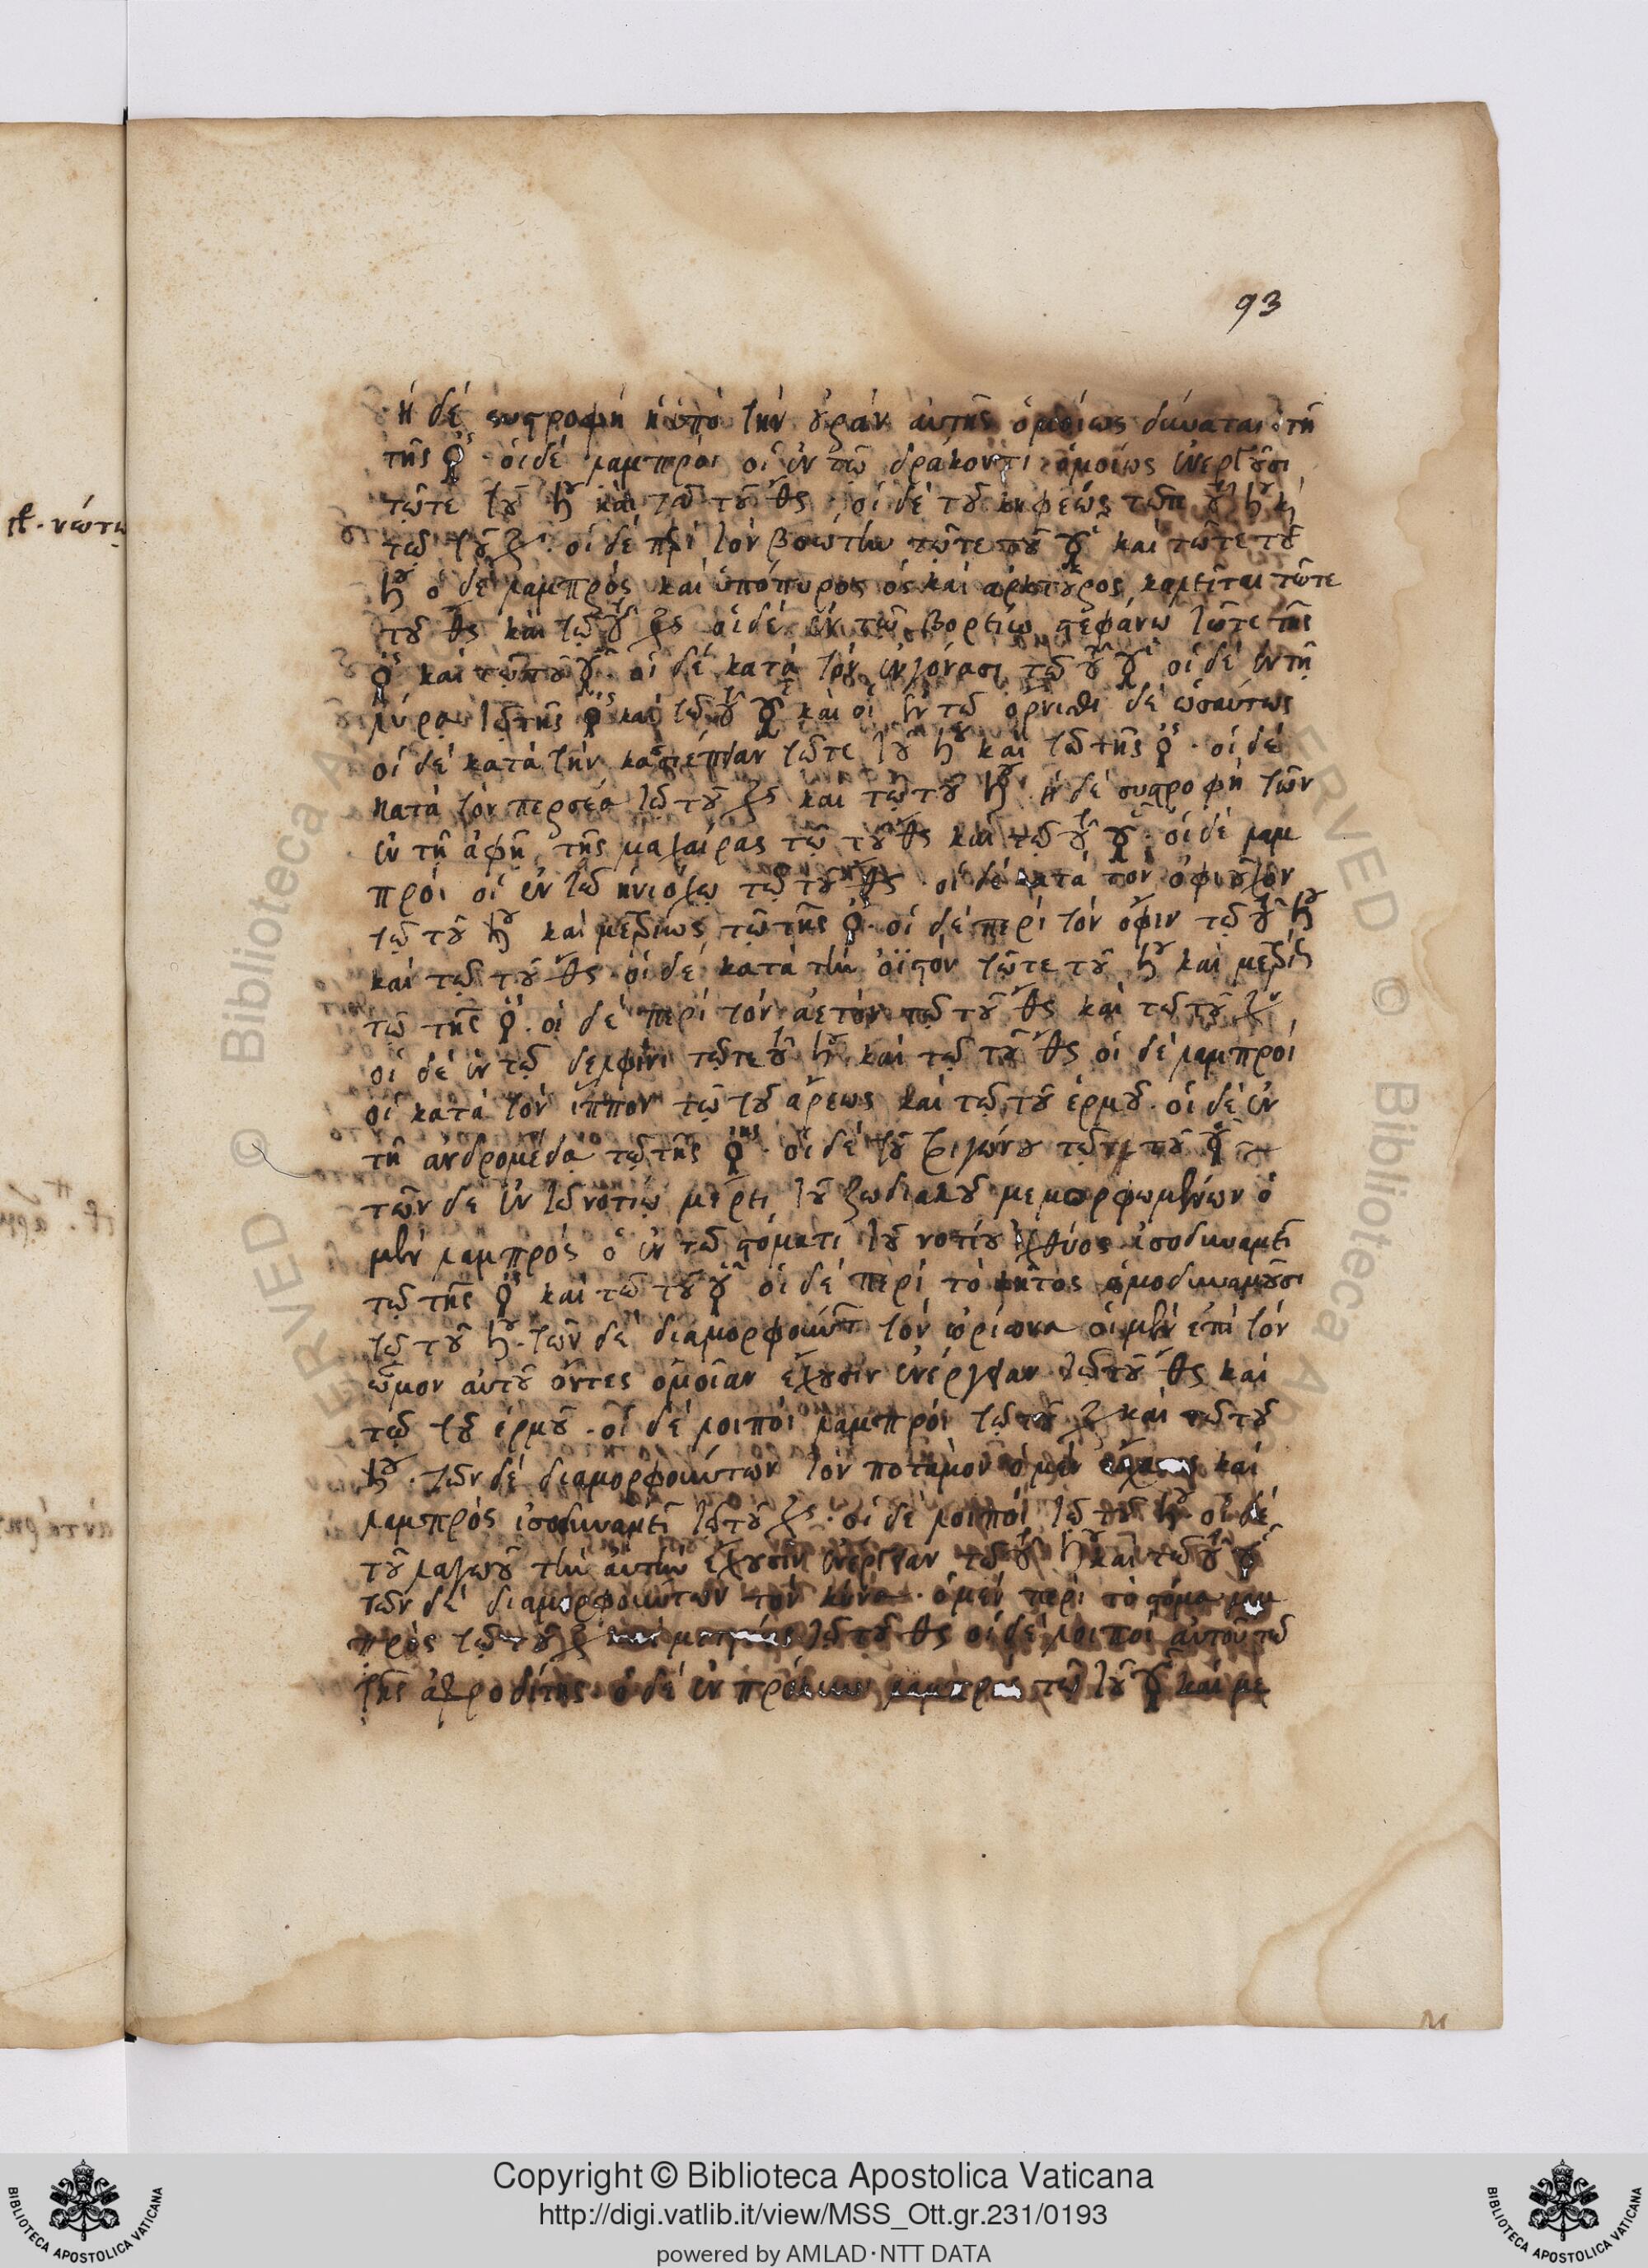 93
κ. νώτῳ
ἡ δὲ συστροφὴ ἡ ὑπὸ τὴν οὐρὰν αὐτῆς ὁμοίως δύναται τῇ
τῆς ♀ς. οἱ δὲ λαμπροὶ οἱ ἐν τῷ δράκοντι ὁμοίως ἐνεργοῦσι
τῷ τε τοῦ ♄ου καὶ τῷ τοῦ ♂ς. οἱ δὲ τοῦ κηφέως τῷ τε τοῦ ♄ου κ
τῷ τοῦ ♃. οἱ δὲ περὶ τὸν βοώτην τῷ τε τοῦ ☿ καὶ τῷ τε τοῦ
♄ου ὁ δὲ λαμπρὸς καὶ ὑπόπυρος ὃς καὶ ἀρκτοῦρος καλεῖται τῷ τε
τοῦ ♂ς καὶ τῷ τοῦ ♃ς οἱ δὲ ἐν τῷ βορείῳ στεφάνῳ τῷ τε τῆς
♀ς καὶ τῷ τοῦ ☿. οἱ δὲ κατὰ τὸν ἐνγόνασι τῷ τοῦ ☿ οἱ δὲ ἐν τῇ
λύρᾳ τῷ τῆς ♀ς καὶ τῷ τοῦ ☿ καὶ οἱ ἐν τῷ ὄρνιθι δὲ ὡσαύτως
οἱ δὲ κατὰ τὴν κασιέπειαν τῷ τε τοῦ ♄ου καὶ τῷ τῆς ♀ς. οἱ δὲ
κατὰ τὸν περσέα τῷ τοῦ ♃ς καὶ τῷ τοῦ ♄ου. ἡ δὲ συστροφὴ τῶν
ἐν τῇ ἀφῇ τῆς μαχαίρας τῷ τοῦ ♂ς καὶ τῷ τοῦ ☿. οἱ δὲ λαμ
προὶ οἱ ἐν τῷ ἡνιόχῳ τῷ τοῦ ♂ς. οἱ δὲ κατὰ τὸν ὀφιοῦχον
τῷ τοῦ ♄ου καὶ μετρίως τῷ τῆς ♀ς. οἱ δὲ περὶ τὸν ὄφιν τῷ τοῦ ♄ου
καὶ τῷ τοῦ ♂ς. οἱ δὲ κατὰ τὴν ὀϊστὸν τῷ τε τοῦ ♄ου καὶ μετρίως
τῷ τῆς ♀. οἱ δὲ περὶ τὸν ἀετὸν τῷ τοῦ ♂ς καὶ τῷ τοῦ ♃
οἱ δὲ ἐν τῷ δελφῖνι τῷ τε τοῦ ♄ου καὶ τῷ τοῦ ♂ς οἱ δὲ λαμπροὶ
οἱ κατὰ τὸν ἵππον τῷ τοῦ ἄρεως καὶ τῷ τοῦ ἑρμοῦ. οἱ δὲ ἐν
τῇ ἀνδρομέδᾳ τῷ τῆς ♀ης. οἱ δὲ τοῦ τριγώνου τῷ τοῦ ☿
τῶν δὲ ἐν τῷ νοτίῳ μέρει τοῦ ζωδιακοῦ μεμορφωμένων ὁ
μὲν λαμπρὸς ὁ ἐν τῷ στόματι τοῦ νοτίου ἰχθύος ἰσοδυναμεῖ
τῷ τῆς ♀ς καὶ τῷ τοῦ ☿ οἱ δὲ περὶ τὸ κῆτος ὁμοδυναμοῦσι
τῷ τοῦ ♄. τῶν δὲ διαμορφούντ τὸν ὠρίωνα οἱ μὲν ἐπὶ τὸν
ὦμον αὐτοῦ ὄντες ὁμοίαν ἔχουσιν ἐνέργειαν τῷ τοῦ ♂ς καὶ
τῷ τοῦ ἑρμοῦ. οἱ δὲ λοιποὶ λαμπροὶ τῷ τοῦ ♃ καὶ τῷ τοῦ
♄ου. τῶν δὲ διαμορφούντων τὸν ποταμὸν ὁ μὲν ἔσχατος καὶ
λαμπρὸς ἰσοδυναμεῖ τῷ τοῦ ♃ς. οἱ δὲ λοιποὶ τῷ τοῦ ♄ου οἱ δὲ
τοῦ λαγωοῦ τὴν αὐτὴν ἔχουσιν ἐνέργειαν τῷ τοῦ ♄ου καὶ τῷ τοῦ ☿
τῶν δὲ διαμορφούντων τὸν κύνα. ὁ μὲν περὶ τὸ στόμα λαμ
πρὸς τῷ τοῦ ♃ καὶ μετρίως τῷ τοῦ ♂ς οἱ δὲ λοιποὶ αὐτοῦ τῷ
τῆς ἀφροδίτης. ὁ δὲ ἐν προκύνι λαμπρὸς τῷ τοῦ ☿ καὶ με
Copyright © Biblioteca Apostolica Vaticana
http://digi.vatlib.it/view/MSS_Ott.gr.231/0193
powered by AMLAD·NTT DATA
BIBLIOTECA APOSTOLICA VATICANA
BIBLIOTECA APOSTOLICA VATICANA